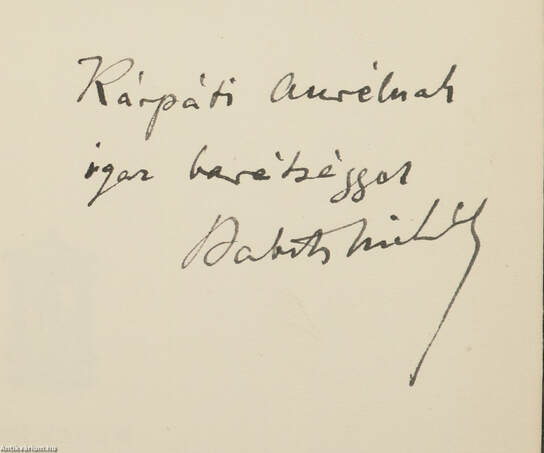 Kárpáti Aurélnak
igaz barátsággal
Babits Mihály
Antikvarium.hu